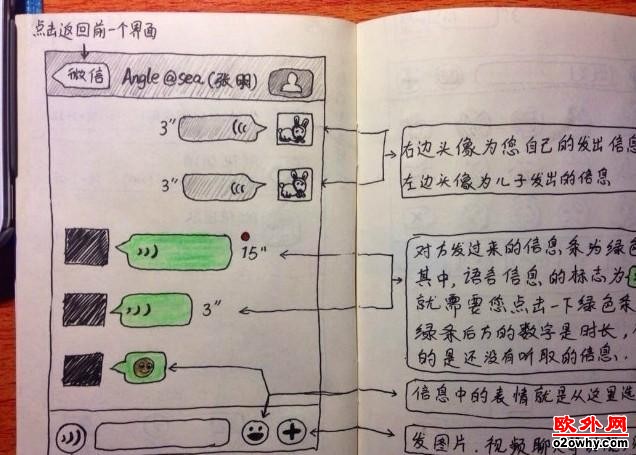 点击返回前一个界面
微信 Angle@sea(张明)
3"
3"
15"
3"
右边头像为您自己的发出信息
左边头像为儿子发出的信息
对方发过来的信息条为绿色
其中,语言信息的标志为
就需要您点击一下绿色条
绿条后方的数字是时长,
的是还没有听取的信息.
信息中的表情就是从这里选
发图片、视频聊天
欧外网
o2owhy.com